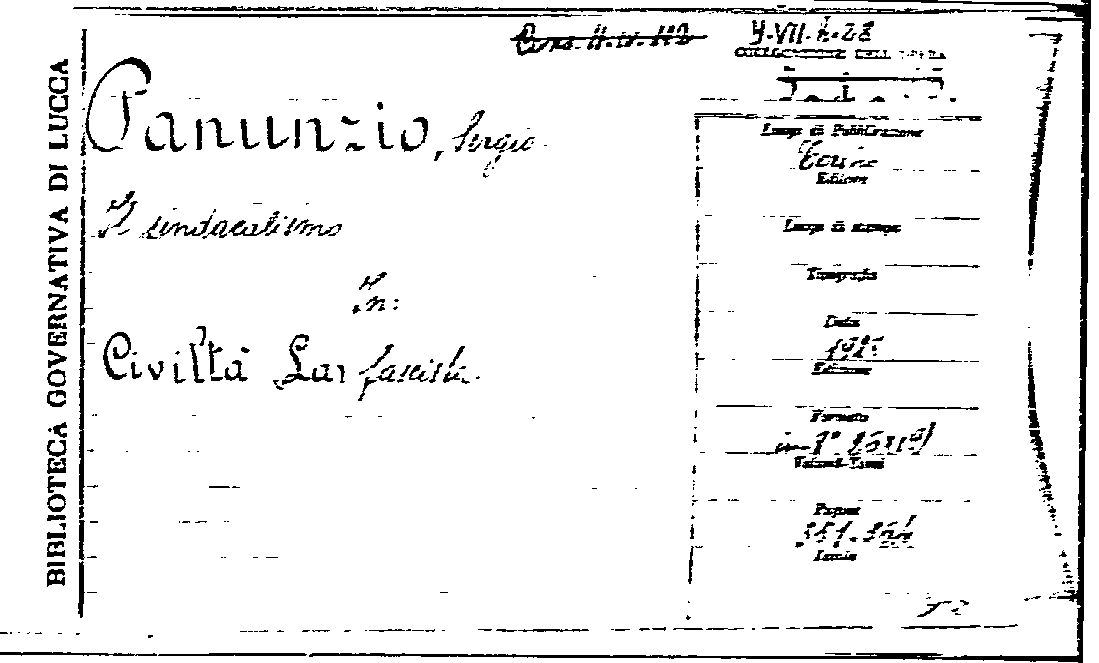 BIBLIOTECA GOVERNATIVA DI LUCCA
Y.VII.h.28
COLLOCAZIONE DELL'OPERA
Panunzio, Sergio.
Il sindacalismo
In:
Civiltà fascista.
Luogo di Pubblicazione
Torino
Editore
Luogo di stampa
Tipografia
Data
Edizione
Formato
in-8°
Volumi-Tomi
Pagine
351-364